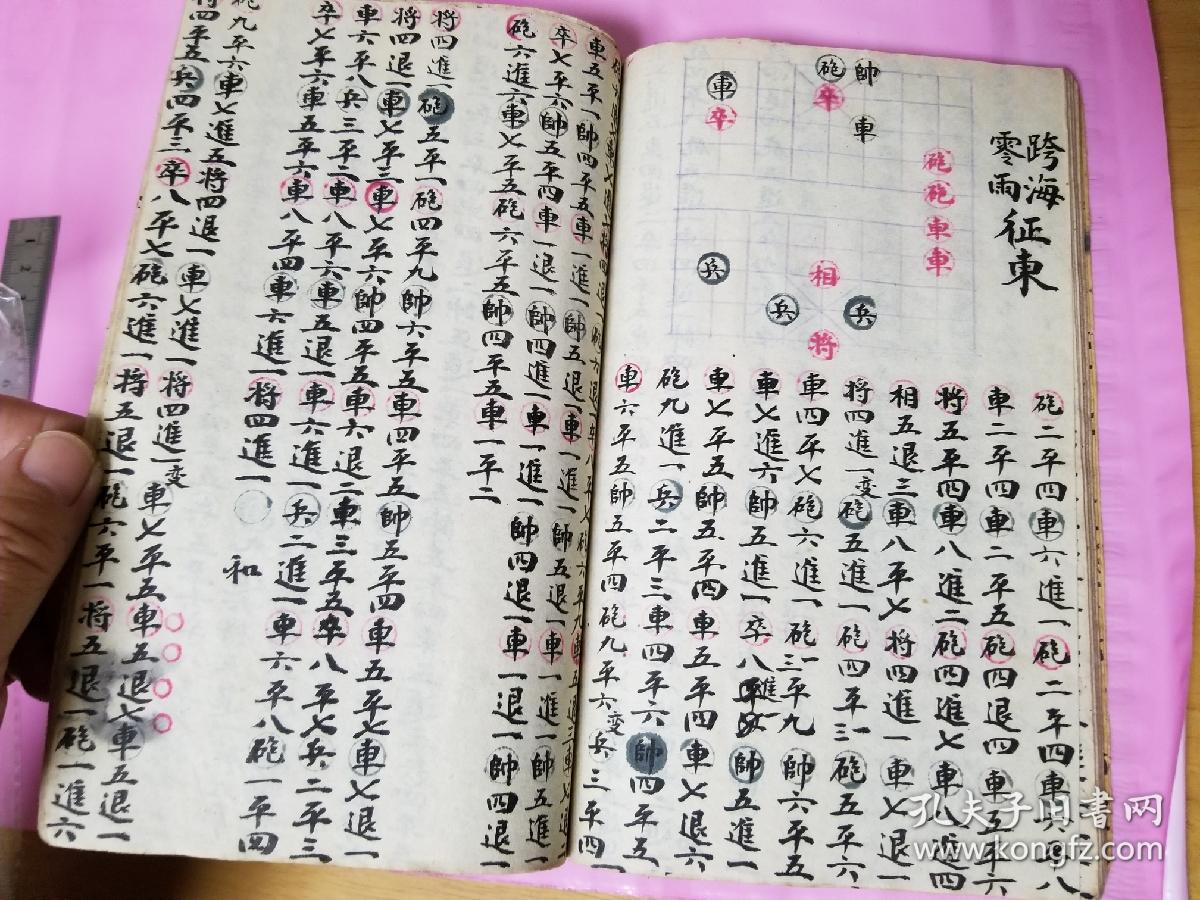 跨海征東
零雨
砲 帥
車 卒
卒 車
砲
砲
車
車
兵 相
兵 兵
将
砲二平四車六進一砲二平四車六退八
車二平四車二平五砲四退四車五平六
将五平四車八進二砲四進七車八進四
相五退三車八平七将四進一車七退一
将四進一变砲五進一砲四平三砲五平六
車四平七砲六進一砲三平九帥六平五
車七進六帥五進一卒八進一帥五進一
車七平五帥五平四車五平四車七退六
砲九進一兵二平三車四平六帥四平五
車六平五帥五平四砲九平六变兵三平四
車五平一帥四平五車一進一帥五退一車一進一帥五退一車一進一帥五進一
卒七平六帥五平四車一退一帥四進一車一進一帥四退一車一退一帥四退一
砲六進六車七平五砲六平五帥四平五車一平二
将四進一砲五平一砲四平九帥六平五車四平五帥五平四車五平七車七退一
将四退一車七平三車七平六帥四平五車六退二車三平五卒八平七兵二平三
車六平八兵三平二車八平六車五退一車六進一兵二進一車六平八砲一平四
卒七平六車五平六車八平四車六進一将四進一
和
砲九平六車七進五将四退一車七進一将四進一变車七平五車五退七車五退一
将四平五兵四平三卒八平七砲六進一将五退一砲六平一将五退一砲一進六
孔夫子旧书网
www.kongfz.com